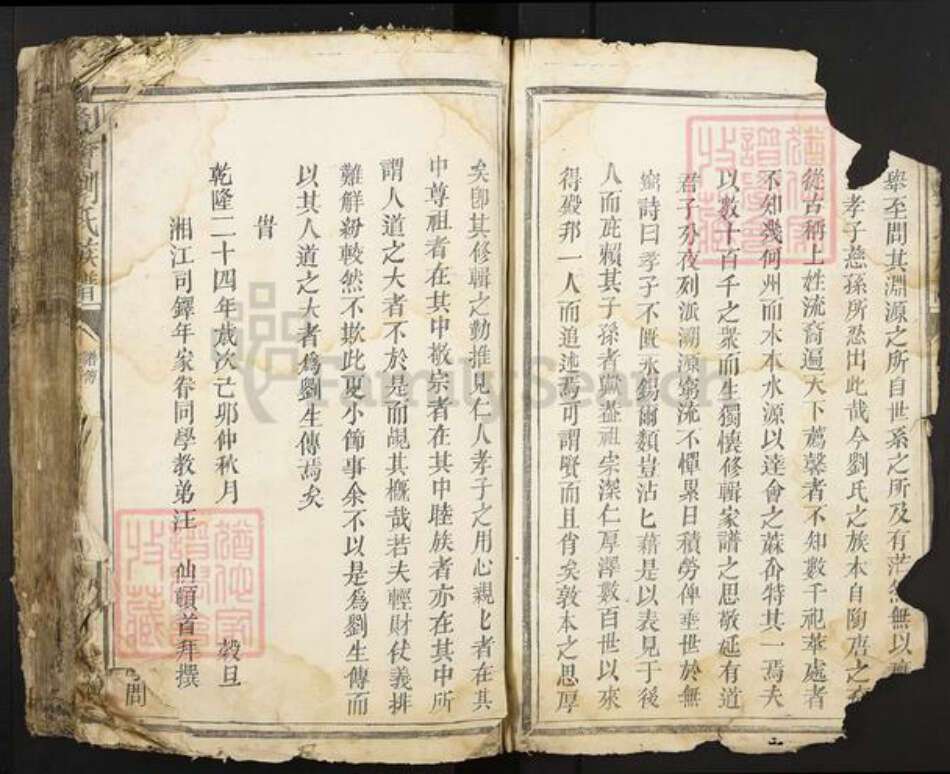 舉至問其淵源之所自世系之所及有茫然無以
孝子慈孫所忍出此哉今劉氏之族本自陶唐之
從古稱上姓流裔遍天下蔫馨者不知數千祀萃處者
不知幾何州而木本水源以達會之蔴岙特其一焉夫
以數十百千之衆而生獨懷修輯家譜之思敬延有道
君子分夜列派溯源窮流不憚累日積勞俾垂世於無
窮詩曰孝子不匱永錫爾類豈沾匕藉是以表見于後
人而庇賴其子孫者歟盖祖宗深仁厚澤數百世以來
得殿邦一人而追述焉可謂賢而且肖矣敦本之思厚
矣卽其修輯之勤推見仁人孝子之用心親匕者在其
中尊祖者在其中敬宗者在其中睦族者亦在其中所
謂人道之大者不於是而覘其概哉若夫輕財仗義排
難解紛較然不欺此更小節事余不以是爲劉生傳而
以其人道之大者爲劉生傳焉矣
旹
乾隆二十四年歲次己卯仲秋月 穀旦
湘江司鐸年家眷同學教弟汪 仙頓首拜撰
劉氏族譜
FamilySearch